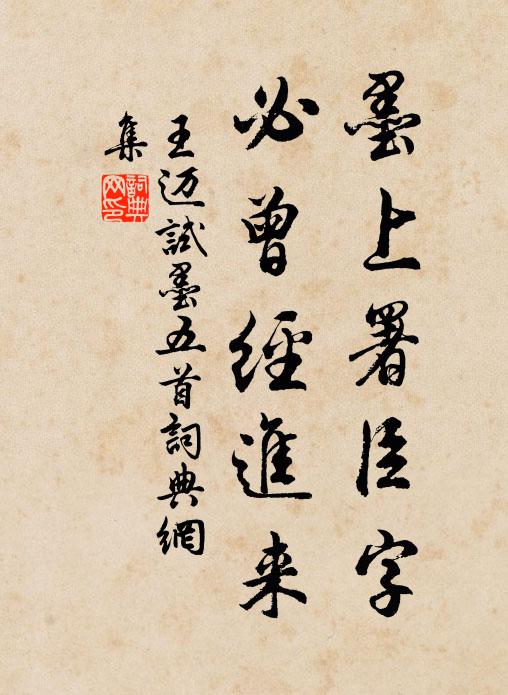 墨上署臣字
必曾經進来
王迈試墨五首詞典網
集
詞典网印